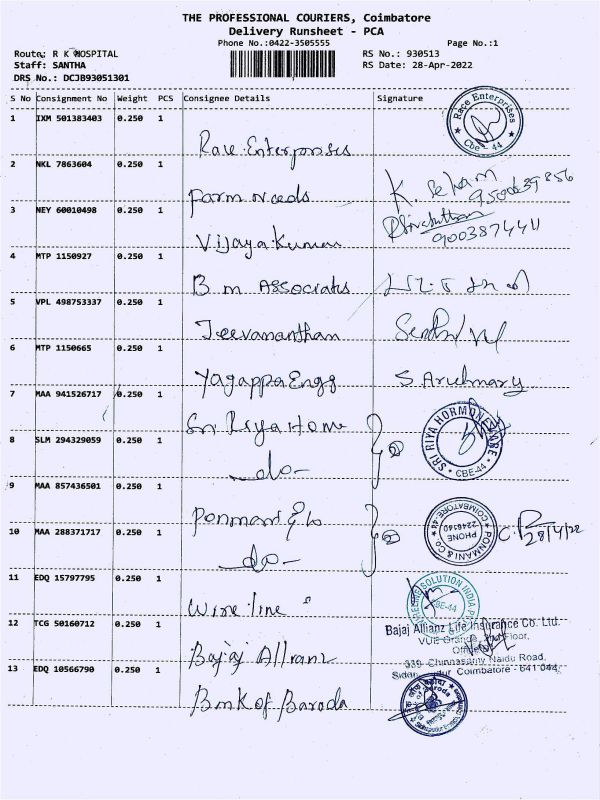 THE PROFESSIONAL COURIERS, Coimbatore
Delivery Runsheet - PCA
Phone No.:0422-3505555 Page No.:1
Route: R K HOSPITAL RS No.: 930513
Staff: SANTHA RS Date: 28-Apr-2022
DRS No.: DCJB93051301
S No Consignment No Weight PCS Consignee Details Signature
1 IXM 501383403 0.250 1 Race Enterprises Race Enterprises Cbe - 44
2 NKL 7863604 0.250 1 Farm needs K. Sekam
3 NEY 60010498 0.250 1 Vijayakumar 9003874411
4 MTP 1150927 0.250 1 B m Associates
5 VPL 498753337 0.250 1 Jeevananthan
6 MTP 1150665 0.250 1 Yagappa Engg S. Arulmary
7 MAA 941526717 0.250 1 Sri Riya Home SRI RIYA HORMONE CARE CBE-44
8 SLM 294329059 0.250 1 -do-
9 MAA 857436501 0.250 1 Ponmani & co PONMANI & CO. COIMBATORE 44 PHONE 2246340
10 MAA 288371717 0.250 1 -do- 28/4/22
11 EDQ 15797795 0.250 1 Wire line SOLUTION INDIA CBE-44
12 TCG 50160712 0.250 1 Bajaj Allianz Bajaj Allianz Life Insurance Co. Ltd.
VUE Grande, Floor,
339, Chinnasamy Naidu Road,
Coimbatore - 641 044.
13 EDQ 10566790 0.250 1 Bank of Baroda